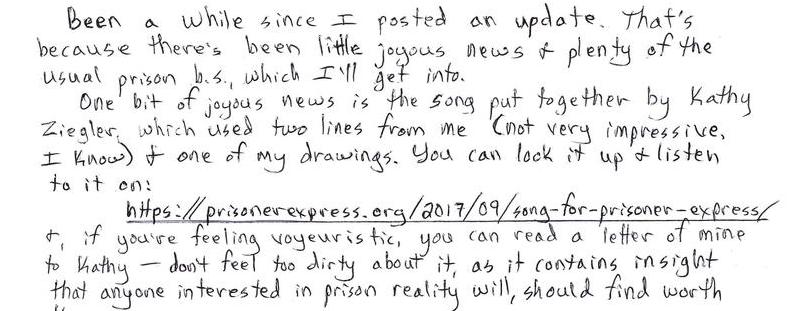 Been a while since I posted an update. That's
because there's been little joyous news & plenty of the
usual prison b.s., which I'll get into.
One bit of joyous news is the song put together by Kathy
Ziegler, which used two lines from me (not very impressive,
I know) & one of my drawings. You can look it up & listen
to it on:
https://prisonerexpress.org/2017/09/song-for-prisoner-express/
&, if you're feeling voyeuristic, you can read a letter of mine
to Kathy — don't feel too dirty about it, as it contains insight
that anyone interested in prison reality will, should find worth